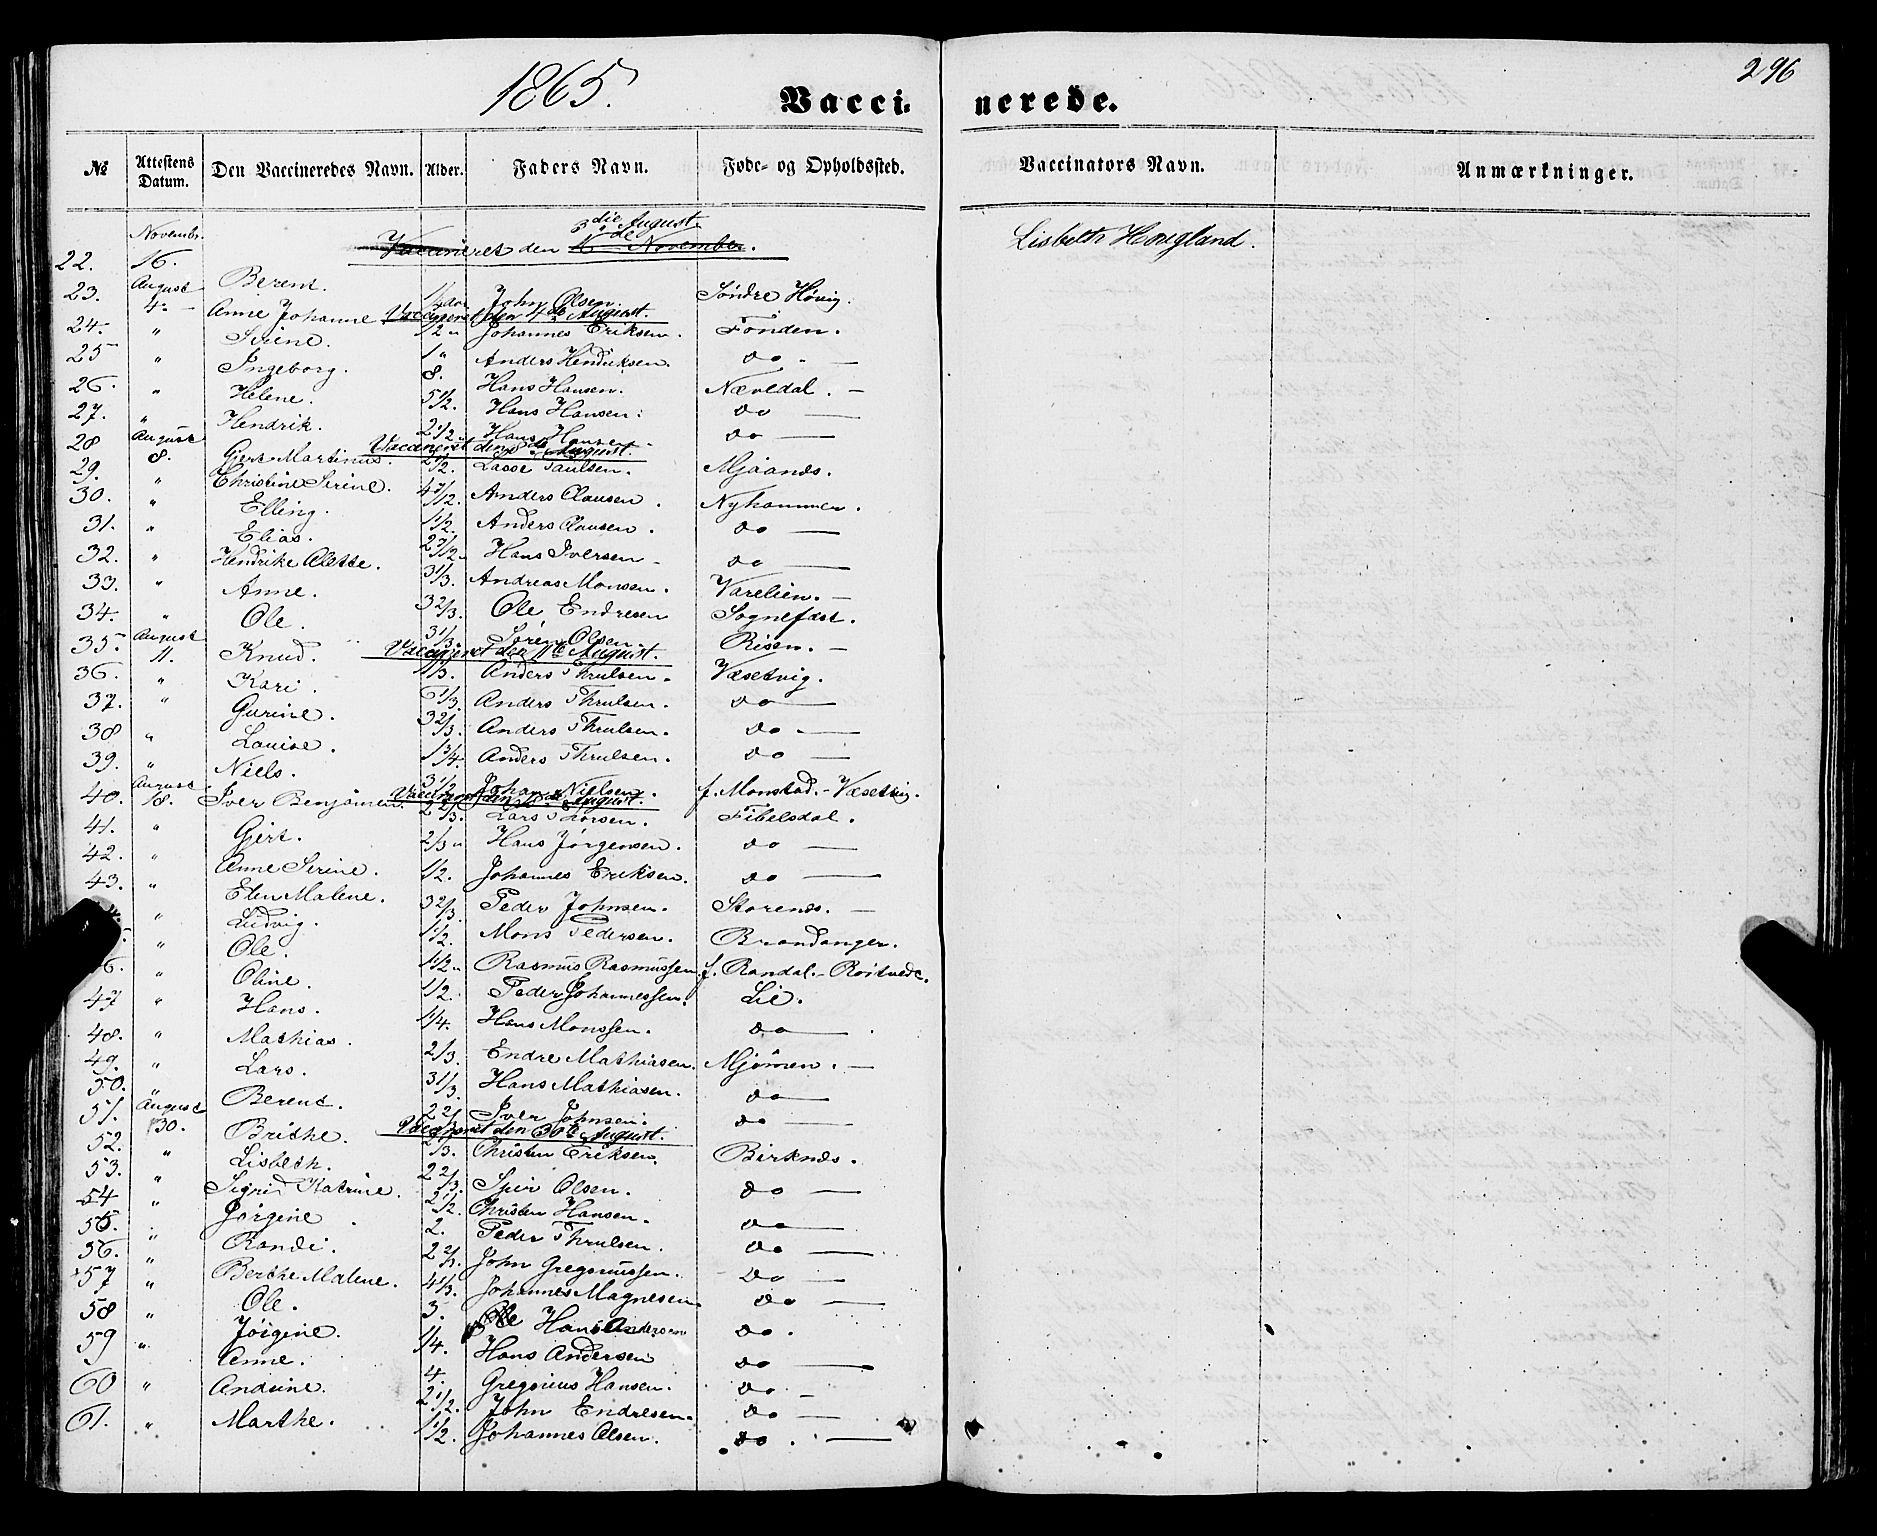 1865.
296
Vacci- nerede.
№ Attestens Datum. Den Vaccineredes Navn. Alder. Faders Navn. Føde- og Opholdssted. Vaccinators Navn. Anmærkninger.
Novembr. Vaccineret den 3die August. Lisbeth Hougland.
22. 16. Berent. John Olsen. Søndre Høvig.
August Vaccineret den 4de August.
23. 4. Anne Johanne 1/2 " Johannes Eriksen. Fonden.
24. " Serine. 1 " Anders Hendriksen. do
25 " Ingeborg. 8. Hans Hansen. Nævedal.
26. " Helene. 5 1/2. Hans Hansen. do
27. " Hendrik. 2 1/2 Hans Hansen. do
August Vaccineret den 8de August.
28 8. Gjert Martinus. 2 1/2. Lasse Paulsen. Mjaanes.
29. " Christine Serine. 4 Anders Clausen. Nyhammer.
30. " Elling. 1 1/2. Anders Clausen. do
31. " Elias. 2 1/2 Hans Iversen do
32. " Hendrike Olette. 3 1/3. Andreas Monsen. Varelien.
33. " Anne. 3 2/3. Ole Endresen Sognefæst.
34. " Ole. 3 1/3. Søren Olsen. Risen.
August Vaccineret den 11te August.
35 11. Knud. 1/3. Anders Thrulsen. Væsetvig.
36. " Kari. 6 1/3. Anders Thrulsen. do
37. " Gurine. 3 2/3. Anders Thrulsen. do
38 " Louise. 1 3/4. Anders Thrulsen. do
39. " Niels. 3 1/2 Johan Nielsen. f. Monstad. - Væsetvig.
August Vaccineret den 18de August.
40. 18. Iver Benjamen. 2 2/3. Lars Larsen. Fibelsdal.
41. " Gjert. 2/3 " Hans Jørgensen. do
42. " Anne Serine. 1/2. Johannes Eriksen. do
43. " Elen Malene. 3 2/3. Peder Johnsen. Storenes.
" Ludvig. 1 1/2. Mons Pedersen. Brandanger.
" Ole. 1 1/2 " Rasmus Rasmussen. f. Randal. - Roitvedt.
46. " Oline. 1/2. Peder Johannessen. Lie.
47 " Hans. 1/4. Hans Monssen. do
48. " Mathias. 2/3. Endre Mathiasen. Mjømen.
49. " Lars. 3 1/3. Hans Mathiasen. do
50. " Berent. 2 2/3 Iver Johnsen. do
August Vaccineret den 30te August.
51. 30. Brithe. 2/3. Christen Eriksen. Birknes.
52. " Lisbeth. 2 2/3. Siver Olsen. do
53. " Sigrid Katrine. 2 1/2. Christen Hansen. do
54 " Jørgine. 2. Peder Thrulsen. do
55. " Randi. 2 2/3. John Gregoriussen. do
56. " Berthe Malene. 4 1/3. Johannes Magnesen do
57 " Ole. 3. Ole Hans Andersen do.
58 " Jørgine. 1/4. Hans Andersen do
59 " Anne. 4. Gregorius Hansen. do
60 " Andrine. 2 1/2. John Endresen. do
61. " Marthe. 1 1/2. Johannes Olsen. do